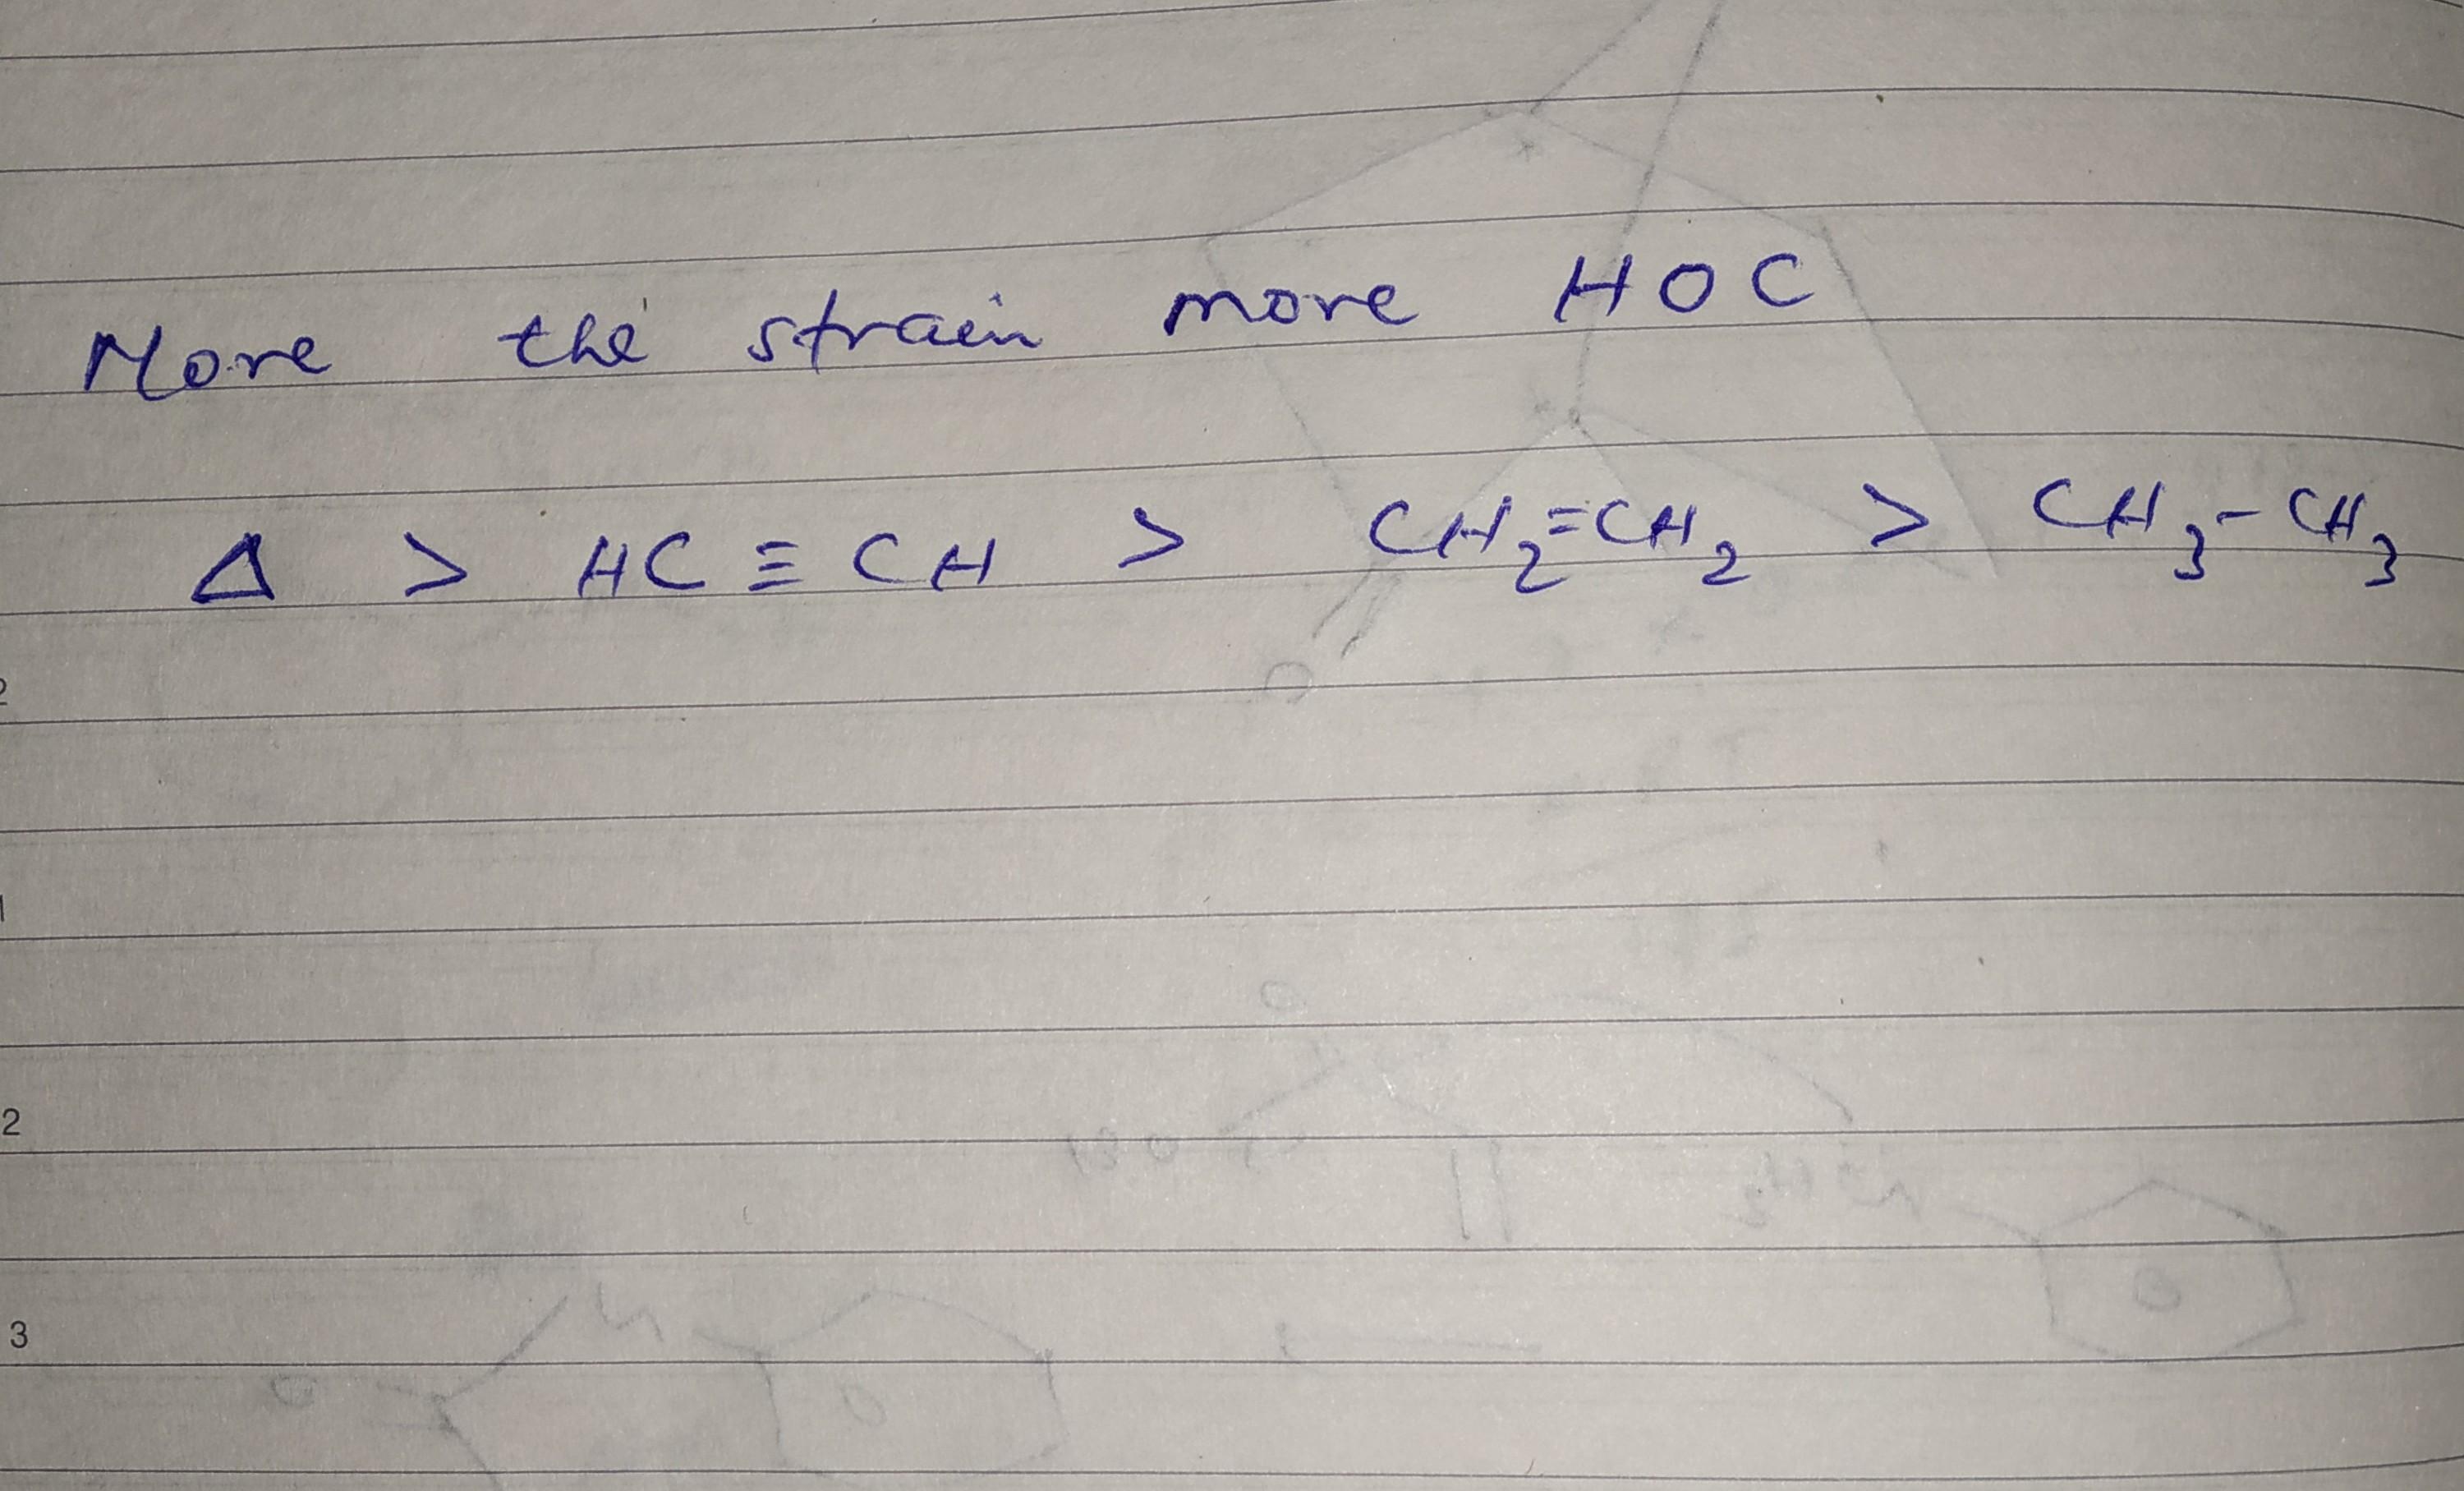 More the strain more HOC
△ > HC≡CH > CH₂=CH₂ > CH₃-CH₃
2
1
2
3